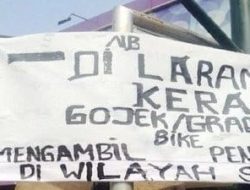 NB
DI LARAN
KERA
GOJEK/GRAB
BIKE
MENGAMBIL PEN
DI WILAYAH S